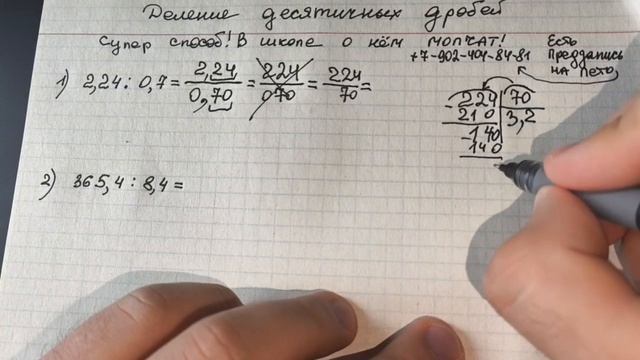 Деление десятичных дробей
Супер способ! В школе о нём молчат!
+7-902-404-84-81
Есть
Предзапись
на лето
1) 2,24 : 0,7 = 2,24/0,70 = 224/070 = 224/70 =
224 70
210 3,2
140
140
2) 365,4 : 8,4 =